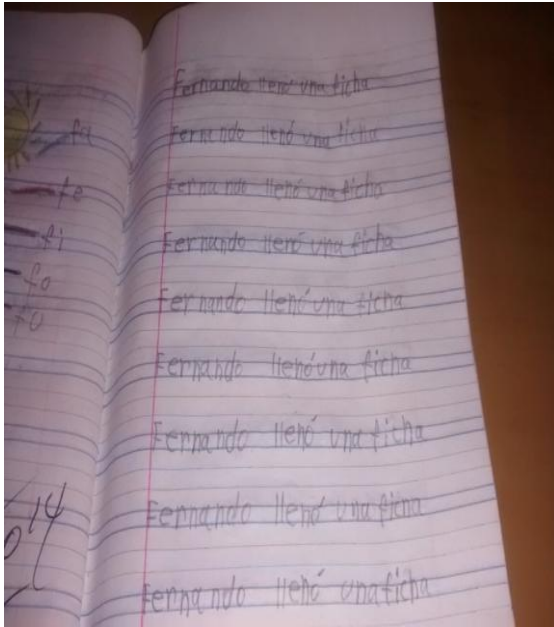 fa
fe
fi
fo
fu
14
Fernando llenó una ficha
Fernando llenó una ficha
Fernando llenó una ficha
Fernando llenó una ficha
Fernando llenó una ficha
Fernando llenó una ficha
Fernando llenó una ficha
Fernando llenó una ficha
Fernando llenó una ficha